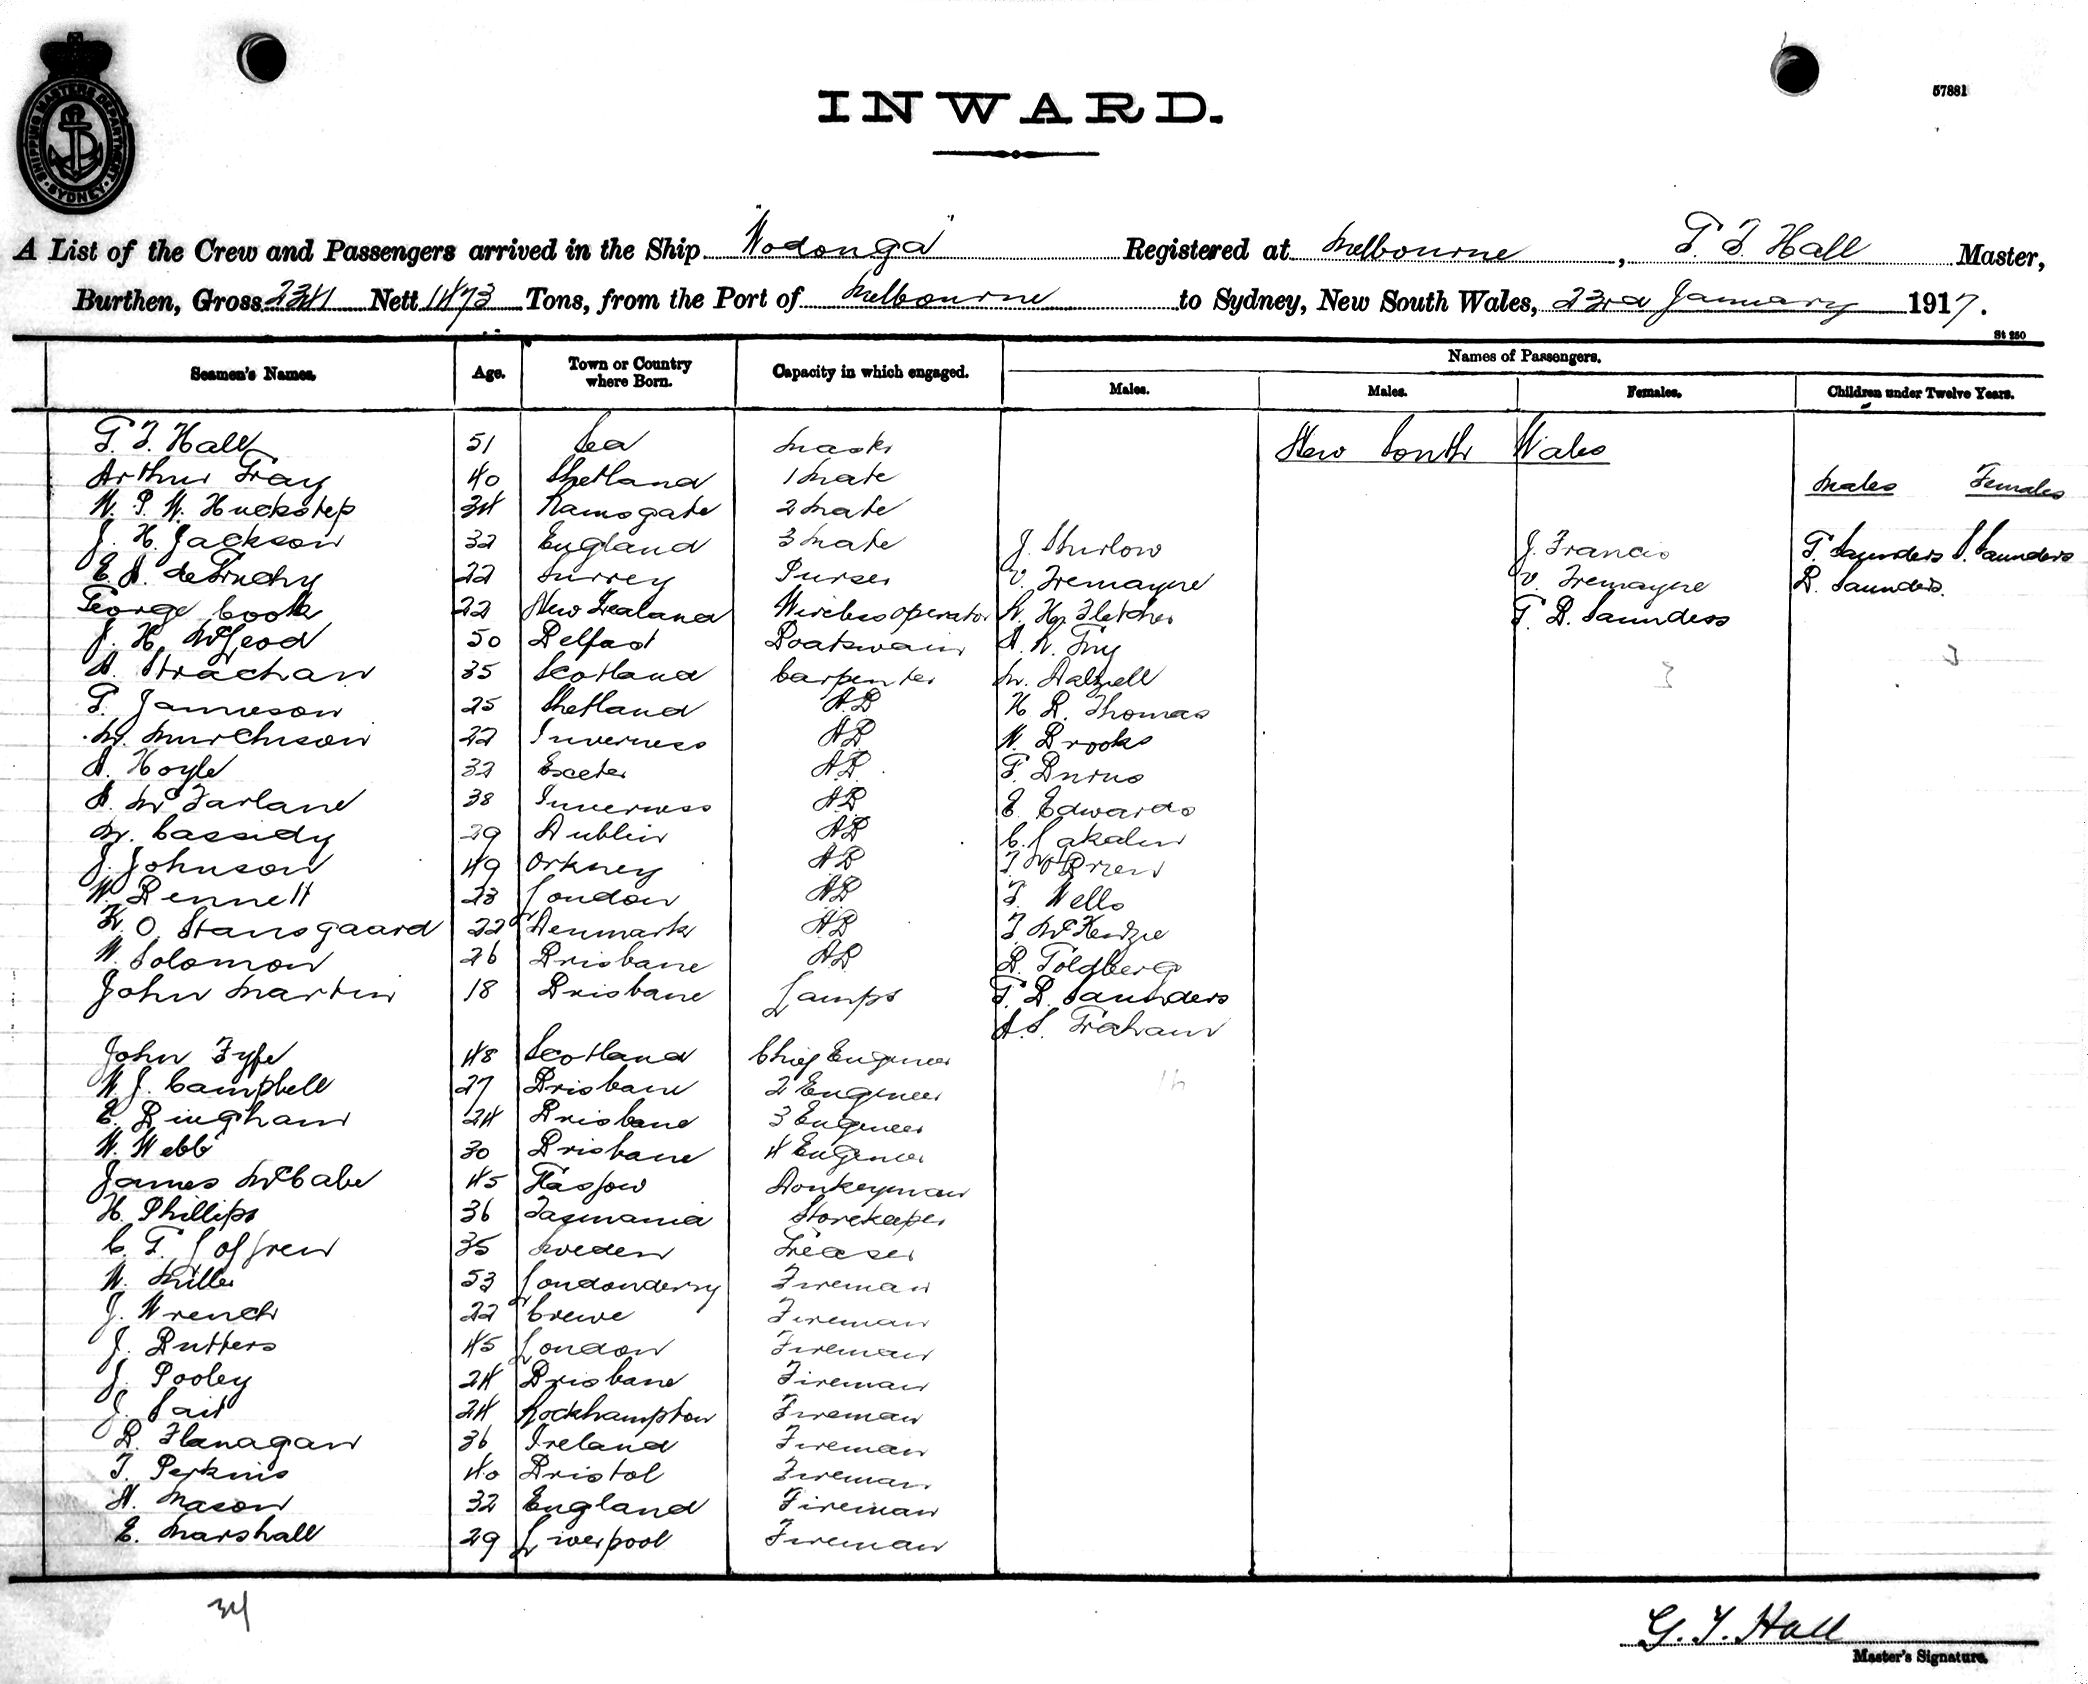 SHIPPING MASTERS DEPARTMENT
SYDNEY
57881
INWARD.
A List of the Crew and Passengers arrived in the Ship "Wodonga" Registered at Melbourne, G. T. Hall Master,
Burthen, Gross 2341 Nett 1473 Tons, from the Port of Melbourne to Sydney, New South Wales, 23rd January 1917.
St 250
Seamen's Names. Age. Town or Country where Born. Capacity in which engaged. Names of Passengers.
Males. Males. Females. Children under Twelve Years.
G. T. Hall 51 Sea Master New South Wales
Arthur Gray 40 Shetland 1 Mate Males Females
W. P. W. Huckstep 34 Ramsgate 2 Mate
J. H. Jackson 32 England 3 Mate J. Thurlow J. Francis G. Saunders S. Saunders
E. A. deGruchy 22 Surrey Purser V. Tremayne V. Tremayne B. Saunders.
George Cook 22 New Zealand Wireless operator Fletcher G. B. Saunders
J. H. McLeod 50 Belfast Boatswain
A. Strachan 35 Scotland Carpenter M. Dalzell 3 3
G. Jamieson 25 Shetland AB H B. Thomas
M. Murchison 22 Inverness AB W. Brooks
A. Hoyle 32 Exeter AB G. Burns
A. McFarlane 38 Inverness AB E Edwards
M. Cassidy 29 Dublin AB
J. Johnson 49 Orkney AB
W. Bennett 23 London AB T. Wells
K. O. Stansgaard 22 Denmark AB T. McKenzie
W. Solomon 26 Brisbane AB B. Goldberg
John Martin 18 Brisbane Lamps G. B. Saunders
A. S. Graham
John Fyfe 48 Scotland Chief Engineer
W. J. Campbell 27 Brisbane 2 Engineer
E. Bingham 24 Brisbane 3 Engineer
W. Webb 30 Brisbane 4 Engineer
James McCabe 45 Glasgow Donkeyman
H. Phillips 36 Tasmania Storekeeper
C. G. Lofgren 35 Sweden Greaser
W. Miller 53 Londonderry Fireman
J. Wrench 22 Crewe Fireman
J. Butters 45 London Fireman
J. Pooley 24 Brisbane Fireman
J. Sait 24 Rockhampton Fireman
B. Flanagan 36 Ireland Fireman
T. Perkins 40 Bristol Fireman
Mason 32 England Fireman
E. Marshall 29 Liverpool Fireman
34
G. T. Hall
Master's Signature.